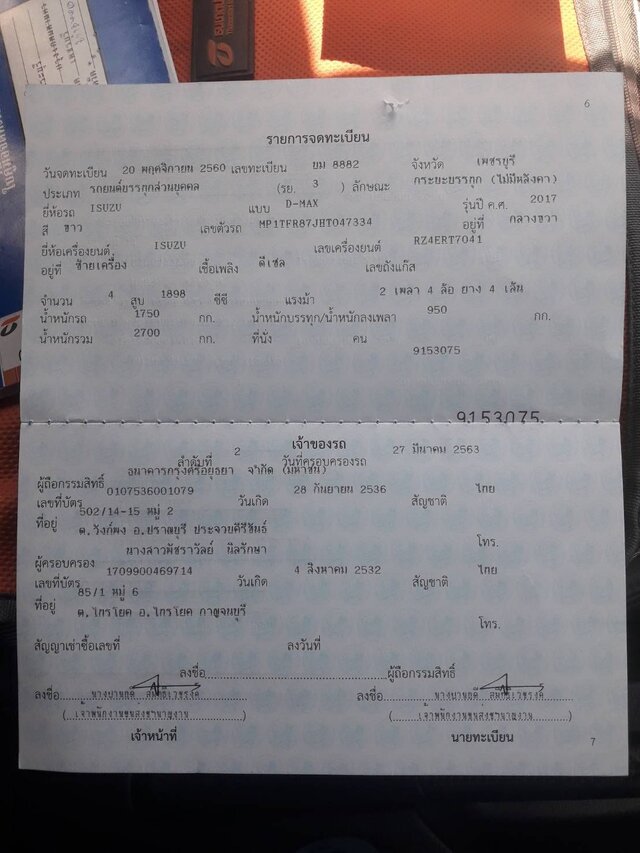 6
รายการจดทะเบียน
วันจดทะเบียน 20 พฤศจิกายน 2560 เลขทะเบียน ยม 8882 จังหวัด เพชรบุรี
ประเภท รถยนต์บรรทุกส่วนบุคคล (รย. 3 ) ลักษณะ กระบะบรรทุก (ไม่มีหลังคา)
ยี่ห้อรถ ISUZU แบบ D-MAX รุ่นปี ค.ศ. 2017
สี ขาว เลขตัวรถ MP1TFR87JHT047334 อยู่ที่ กลางขวา
ยี่ห้อเครื่องยนต์ ISUZU เลขเครื่องยนต์ RZ4ERT7041
อยู่ที่ ซ้ายเครื่อง เชื้อเพลิง ดีเซล เลขถังแก๊ส
จำนวน 4 สูบ 1898 ซีซี แรงม้า 2 เพลา 4 ล้อ ยาง 4 เส้น
น้ำหนักรถ 1750 กก. น้ำหนักบรรทุก/น้ำหนักลงเพลา 950 กก.
น้ำหนักรวม 2700 กก. ที่นั่ง คน
9153075
9153075
เจ้าของรถ
ลำดับที่ 2 วันที่ครอบครองรถ 27 มีนาคม 2563
ผู้ถือกรรมสิทธิ์ ธนาคารกรุงศรีอยุธยา จำกัด (มหาชน)
เลขที่บัตร 0107536001079 วันเกิด 28 กันยายน 2536 สัญชาติ ไทย
ที่อยู่ 502/14-15 หมู่ 2
ต.วังก์พง อ.ปราณบุรี ประจวบคีรีขันธ์ โทร.
ผู้ครอบครอง นางสาวพัชราวัลย์ นิลรักษา
เลขที่บัตร 1709900469714 วันเกิด 4 สิงหาคม 2532 สัญชาติ ไทย
ที่อยู่ 85/1 หมู่ 6
ต.ไทรโยค อ.ไทรโยค กาญจนบุรี โทร.
สัญญาเช่าซื้อเลขที่ ลงวันที่
ลงชื่อ ผู้ถือกรรมสิทธิ์
ลงชื่อ ลงชื่อ
(เจ้าพนักงานขนส่งชำนาญงาน) (เจ้าพนักงานขนส่งชำนาญงาน)
เจ้าหน้าที่ นายทะเบียน
7